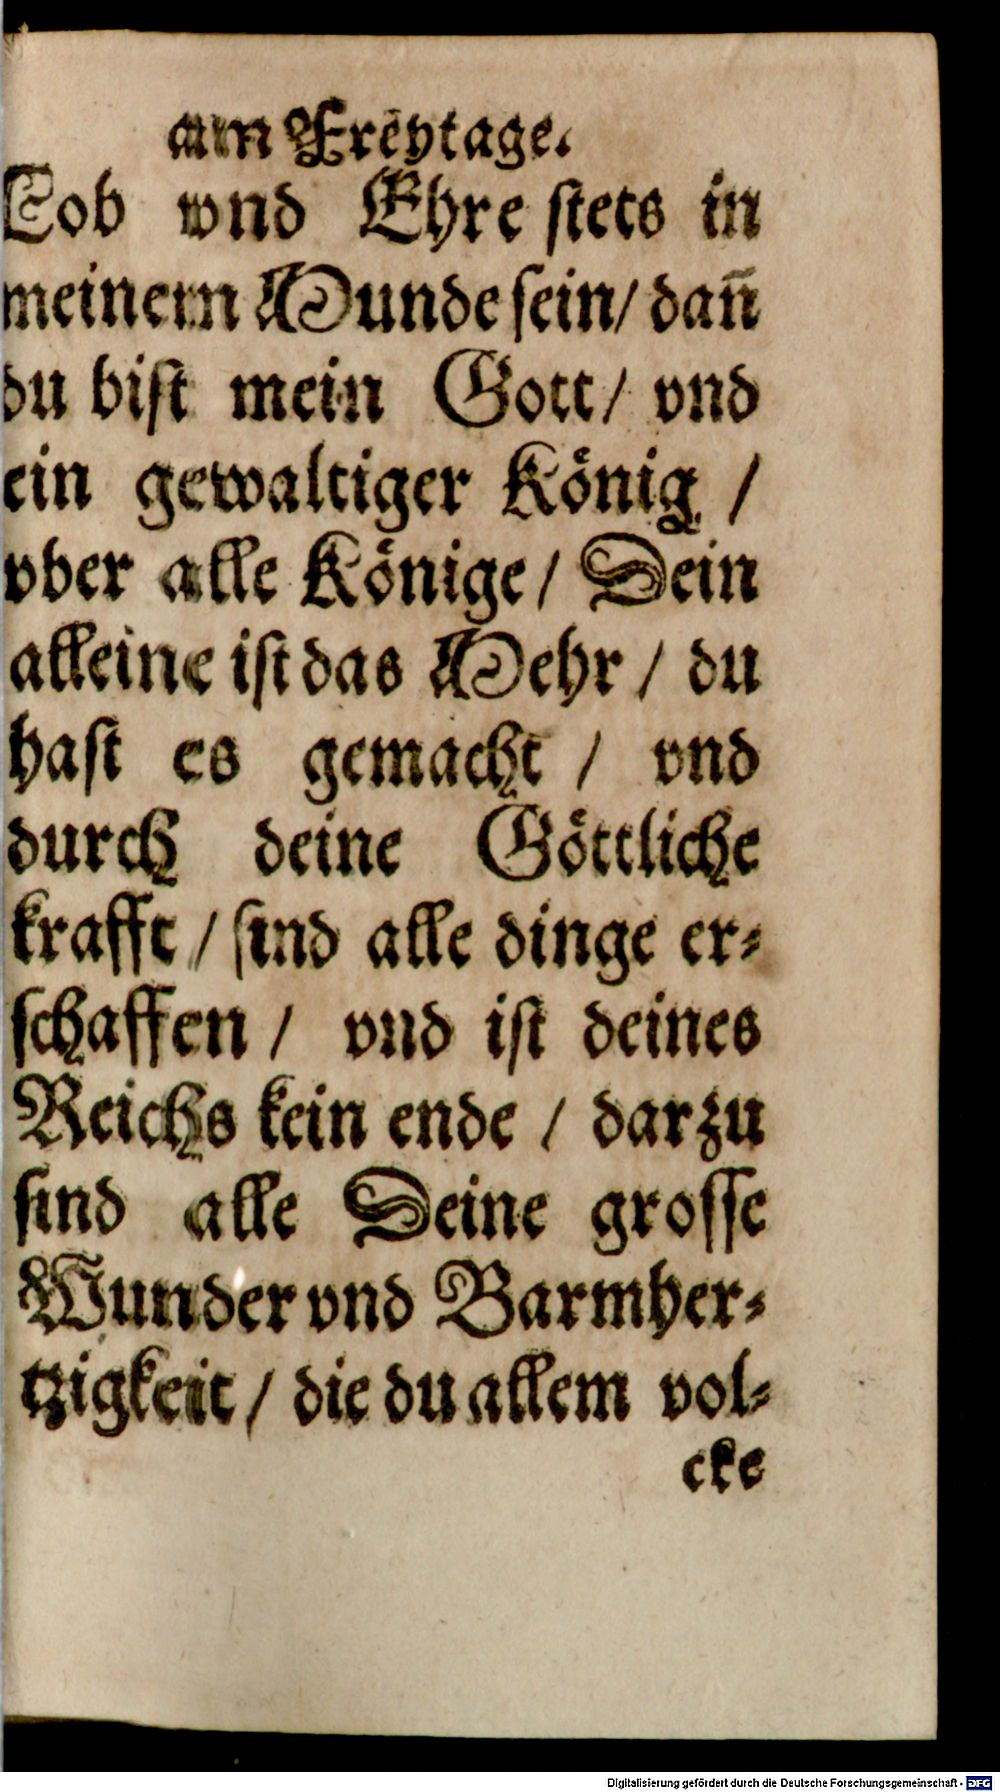 am Freytage.
Lob wnd Ehre stets in
meinem Munde sein/ dañ
du bist mein Gott/ vnd
ein gewaltiger König /
vber alle Könige/ Dein
alleine ist das Mehr / du
hast es gemacht / vnd
durch deine Göttliche
krafft / sind alle dinge er-
schaffen / vnd ist deines
Reichs kein ende / darzu
sind alle Deine grosse
Wunder vnd Barmher-
tzigkeit / die du allem vol-
cke
Digitalisierung gefördert durch die Deutsche Forschungsgemeinschaft - DFG